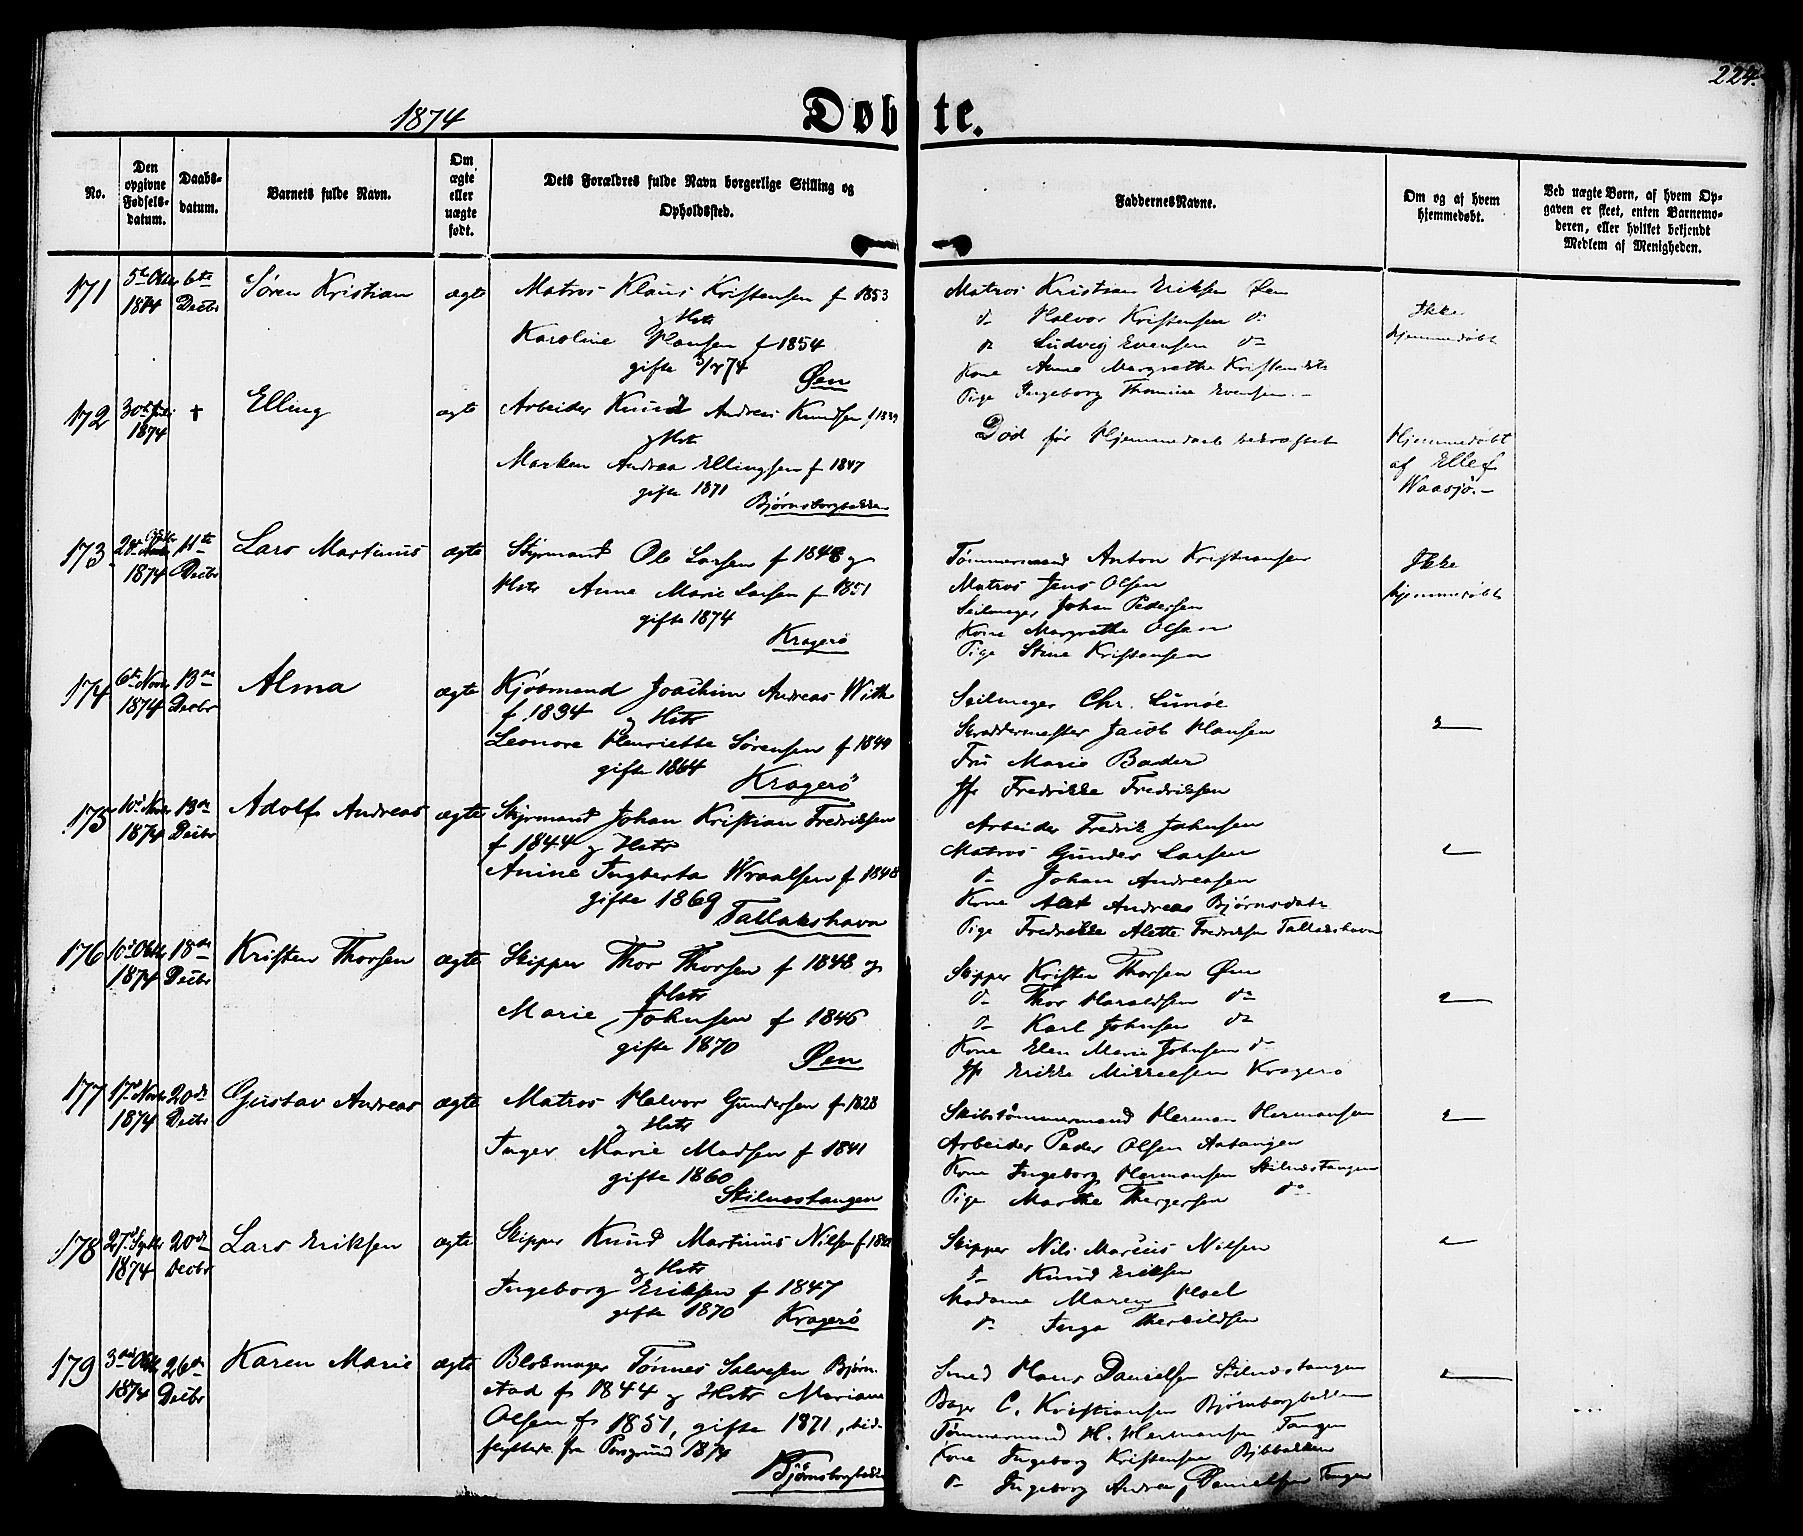 224.
1874
Døbte.
No.
Den opgivne Fødselsdatum.
Daabsdatum.
Barnets fulde Navn.
Om ægte eller uægte født.
Dets Forældres fulde Navn borgerlige Stilling og Opholdssted.
Faddernes Navne.
Om og af hvem hjemmedøbt.
Ved uægte Børn, af hvem Opgaven er skeet, enten Barnemoderen, eller hvilket bekjendt Medlem af Menigheden.
171 1874 6te Decbr Søren Kristian ægte
Matros Klaus Kristensen f 1853
og Hstr
Karoline Hansen f 1854
gifte
Øen
Matros Kristian Eriksen Øen
do Halvor Kristensen do
do Ludvig Evensen do
Kone Anne Margrethe
Pige Ingeborg Thomine Evensen
Ikke
hjemmedøbt
172 1874 † Elling ægte
Arbeider Knud Andreas Knudsen f 1839
og Hstr
Maren Andrea Ellingsen f 1847
gifte 1871
Bjørnsborgbakken
Død før Hjemmedaab bekræftet
Hjemmedøbt
af Ellef
Waasjø.
173 1874 11te Decbr Lars Martinus ægte
Styrmand Ole Larsen f 1848 og
Hstr Anne Marie Larsen f 1851
gifte 1874
Kragerø
Tømmermand Anton Kristiansen
Matros Jens Olsen
Seilmager Johan Pedersen
Kone Margrethe Olsen
Pige Stine Kristensen
Ikke
hjemmedøbt
174 6te Novbr 1874 13de Decbr Alma ægte
Kjøbmand Joachim Andreas With
f. 1834 og Hstr
Leonore Henriette Sørensen f 1840
gifte 1864
Kragerø
Seilmager Chr. Lunøe
Skræddermester Jacob Hansen
Fru Marie Bader
Jfr Fredrikke Fredriksen
175 10de Novbr 1874 13de Decbr Adolf Andreas ægte
Styrmand Johan Kristian Fredriksen
f 1844 og Hstr
Anine Ingberta Wraalsen f 1848
gifte 1869
Tallakshavn
Arbeider Fredrik Johnsen
Matros Gunder Larsen
do Johan Andreasen
Kone Andreas Bjørnsdatr
Pige Fredrikke Alette Fredriksen Tallakshavn
176 10de Oktbr 1874 18de Decbr Kristen Thorsen ægte
Skipper Thor Thorsen f 1848 og
Hstr
Marie Johnsen f 1846
gifte 1870
Øen
Skipper Kristen Thorsen Øen
do Thor Haraldsen do
do Karl Johnsen do
Kone Elen Marie Johnsen do
Jfr Erikke Mikkelsen Kragerø
177 17de Novbr 1874 20de Decbr Gustav Andreas ægte
Matros Halvor Gundersen f 1828
og Hstr
Inger Marie Madsen f 1841
gifte 1860
Stilnestangen
Skibstømmermand Herman Hermansen
Arbeider Peder Olsen
Kone Ingeborg Hermansen Stilnestangen
Pige Marthe Thergersen do
178 27de Septbr 1874 20de Decbr Lars Eriksen ægte
Skipper Knud Martinus Nilsen
og Hstr
Ingeborg Eriksen f 1847
gifte 1870
Kragerø
Skipper Nils Marius Nilsen
do Knud Eriksen
Madame Maren Hoel
do Inga Therkildsen
179 3die Oktbr 1874 26de Decbr Karen Marie ægte
Blokmager Tønnes Salvesen Bjørn-
stad f 1844 og Hstr Mariane
Olsen f 1851, gifte 1871, ind-
flyttede fra Porsgrund 1874
Bjørnsborgbakken
Smed Hans Danielsen Stilnestangen
Bager C. Kristiansen Bjørnsborgbakken
Tømmermand H. Hermansen Tangen
Kone Ingeborg Kristensen
do Ingeborg Andrea Danielsen Tangen